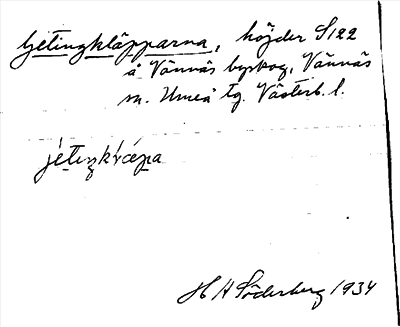 Getingkläpparna, höjder S122
å Vännäs byskog, Vännäs
sn. Umeå tg. Västerb. l.
jétiŋkrǽpa
H A Söderberg 1934